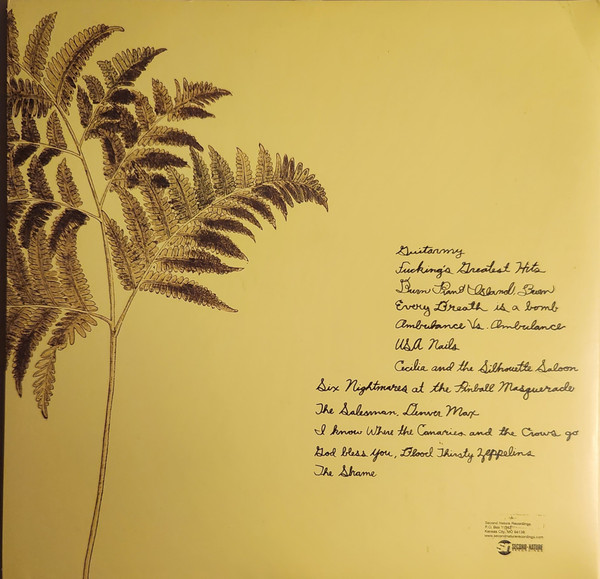 Guitarmy
Fucking's Greatest Hits
Burn Piano Island, Burn
Every Breath is a bomb
Ambulance Vs. Ambulance
USA Nails
Cecilia and the Silhouette Saloon
Six Nightmares at the Pinball Masquerade
The Salesman, Denver Max
I know Where the Canaries and the Crows go
God bless You, Blood Thirsty Zeppelins
The Shame
Second Nature Recordings
P.O. Box
Kansas City, MO
www.secondnaturerecordings.com
SECOND·NATURE